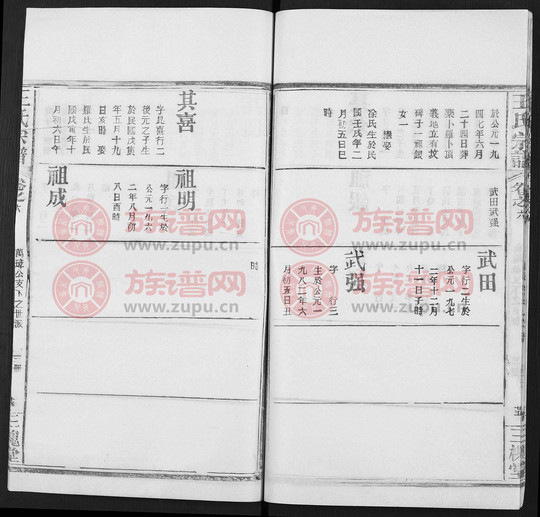 王氏宗譜
卷之六
武田武强
三槐堂
於公元一九
四七年六月
二十四日葬
栗卜羅卜頂
義地立有坟
碑子一福銀
女一
徐氏生於民
國壬戌年二
月初五日巳
時
武田
字行二生於
公元一九七
二年十二月
十一日子時
武强
字 行三
生於公元一
九八二年六
月初五日丑
時
其喜
字昆喜行二
後元之子生
於民國戊辰
年五月十九
日亥時娶
羅氏生於民
國戊寅年十
月初六日午
祖明
字行一生於
公元一九六
二年八月初
八日酉時
祖成
王氏宗譜
卷之六
萬璋公支下之世派
三槐堂
族谱网
www.zupu.cn
族谱网
www.zupu.cn
族谱网
www.zupu.cn
族谱网
www.zupu.cn